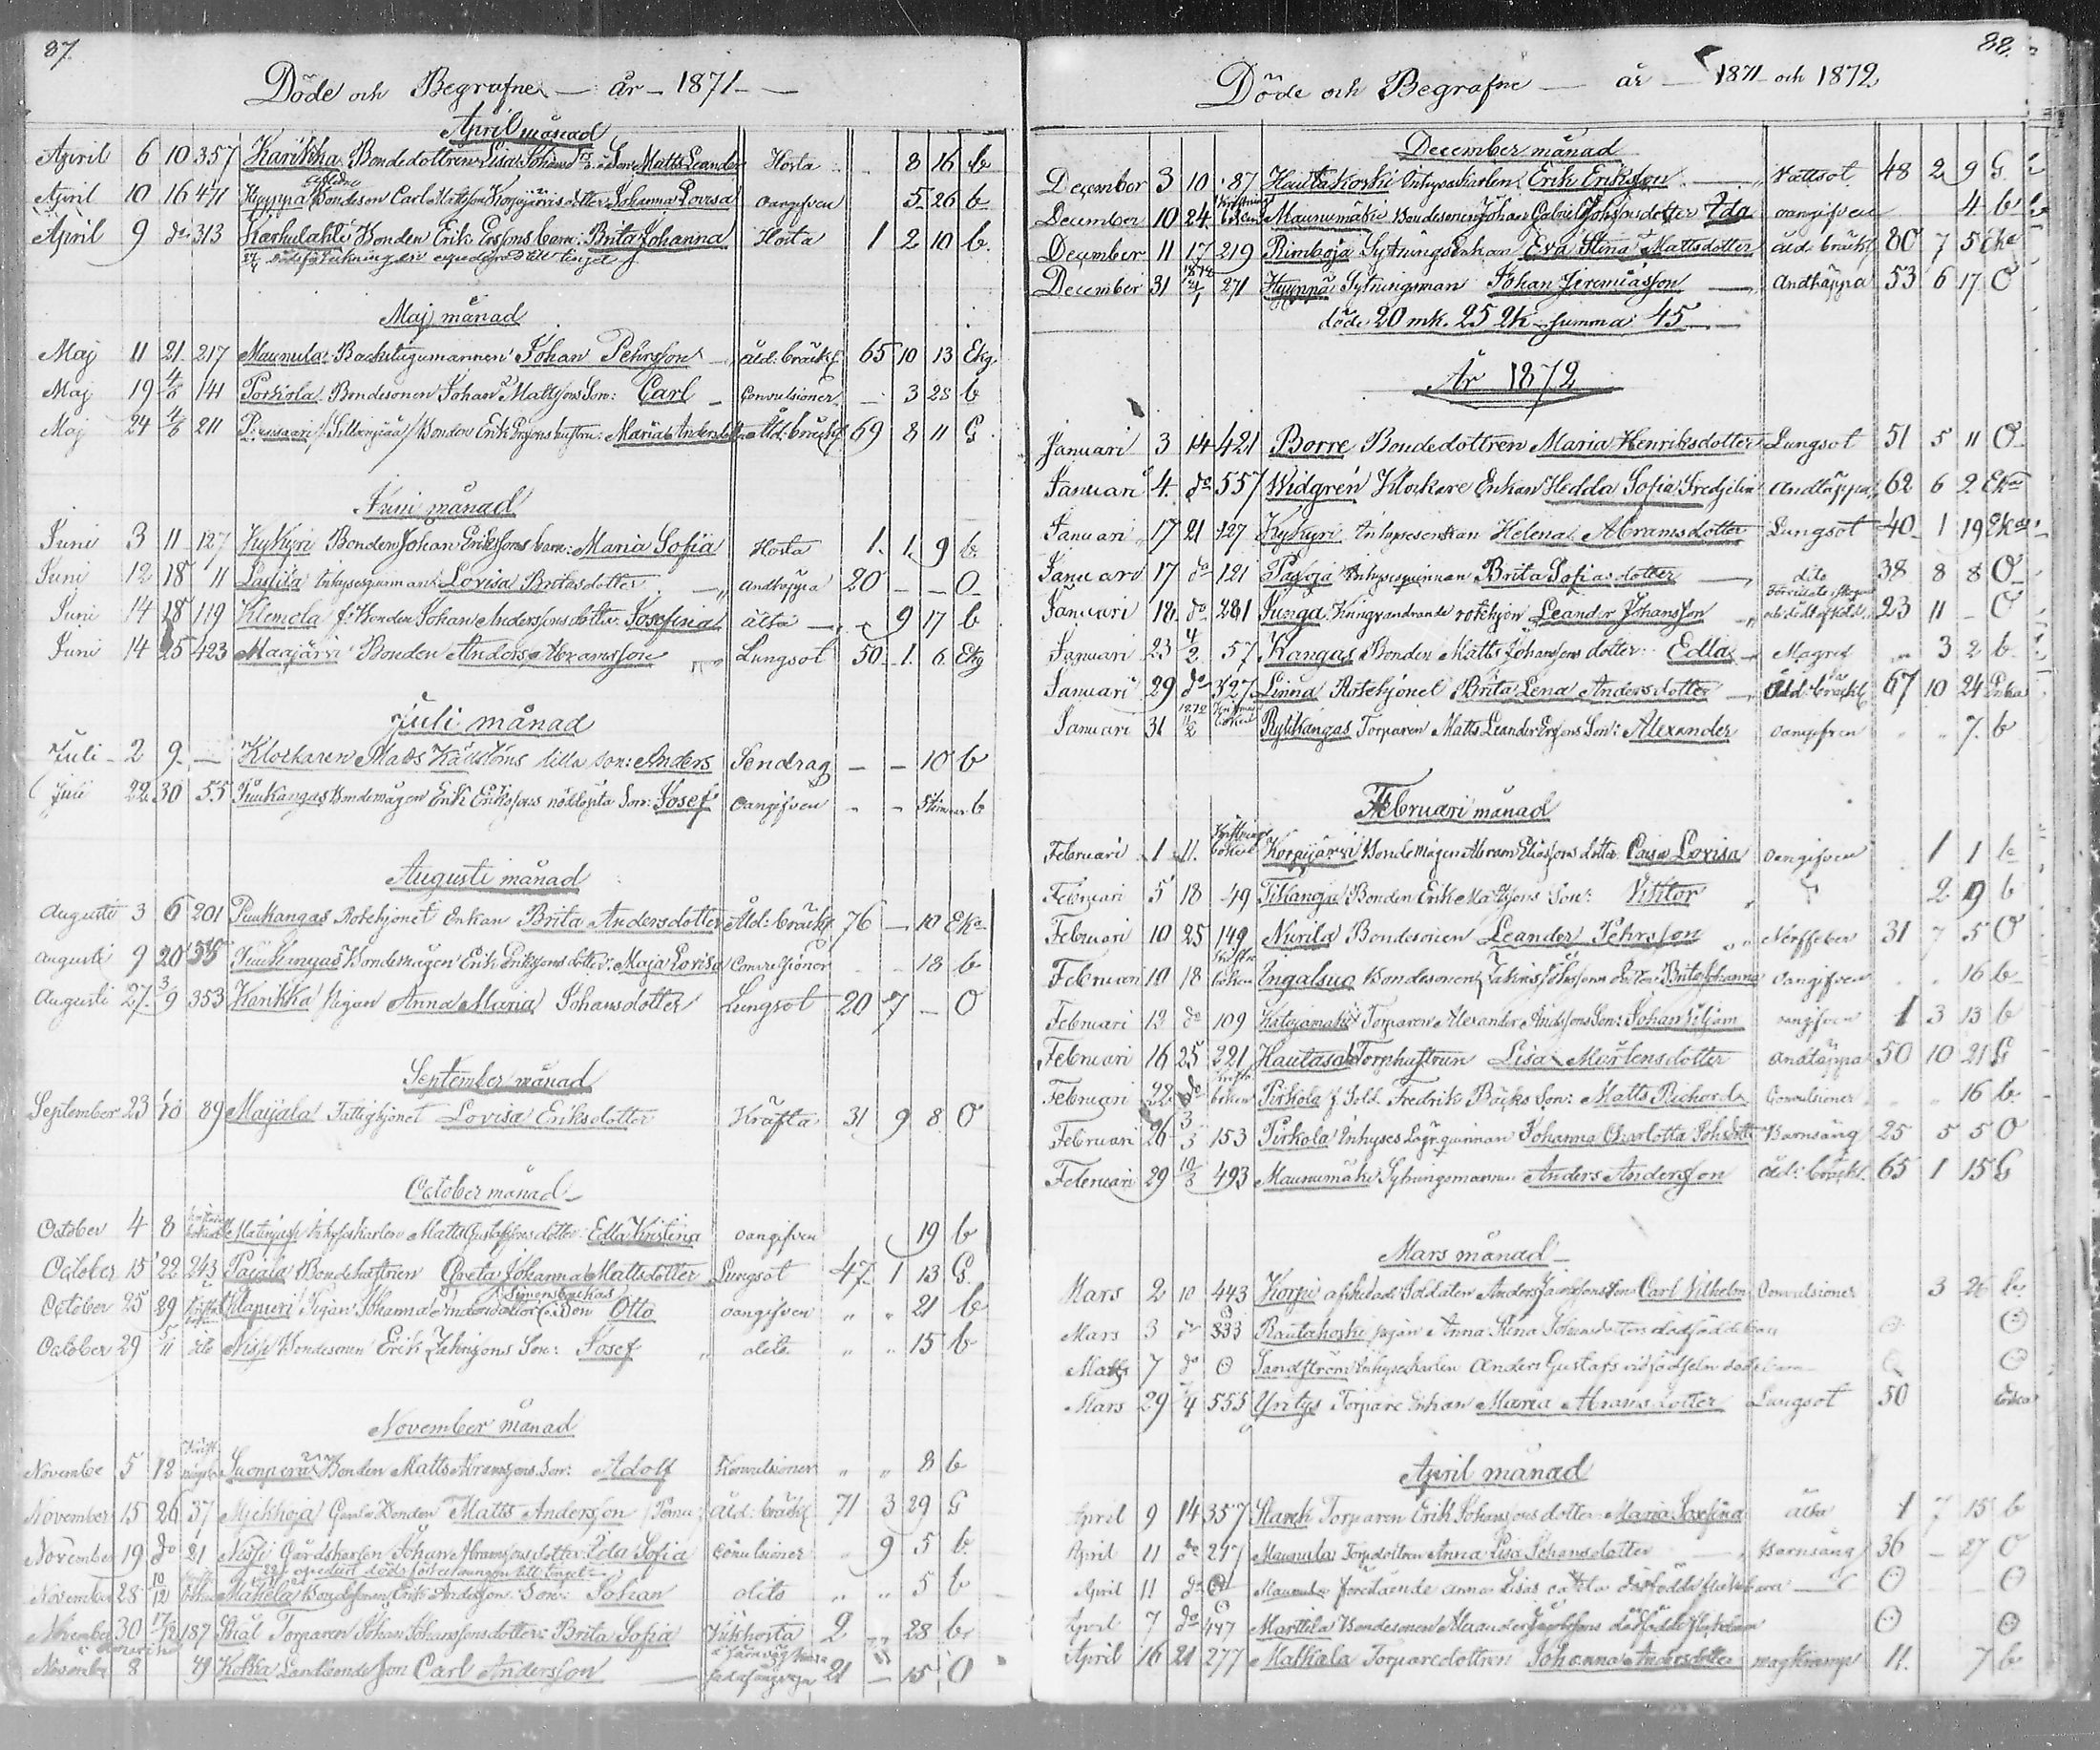 87.
Döde och Begrafne — år — 1871 —
April månad
April 6 10 357 Karikka Bondedottren Lisa Johansd:s Son Matts Leander Hosta 8 16 b
April 10 16 471 Hyyppä Bondeson Carl dotter Johanna Lovisa oangifven 5 26 b
April 9 do 313 Karhulahti Bonden Erik Ersons barn: Brita Johanna Hosta 1 2 10 b.
Maj månad
Maj 11 21 217 Maunula Backstugumannen Johan Pehrsson åld: bräckl 65 10 13 Ekg.
Maj 19 4/6 141 Porkola Bondesonen Johan Mattsons Son: Carl Convulsioner — 3 28 b
Maj 24 4/6 211 Bonden Erik Ersons hustru: Maria Andersdotter Åld: bräckl 69 8 11 G
Juni månad
Juni 3 11 127 Kykyri Bonden Johan Erikssons barn: Maria Sofia Hosta 1. 1. 9 b
Juni 12 18 11 Lovisa Britasdotter Andtäppa 20 — — O
Juni 14 18 119 Klemola Bonden Johan Anderssons dotter Josefina älta — 9 17 b
Juni 14 25 423 Maajärvi Bonden Anders Abramsson Lungsot 50 1. 6 Ekg
Juli månad
Juli 2 9 — Klockaren Matts Källströms lilla son: Anders Sendrag — — 10 b
Juli 22 30 55 Puukangas Bondemågen Erik Erikssons nöddöpta Son: Josef oangifven - - b
Augusti månad
Augusti 3 6 201 Puukangas Rotehjonet Enkan Brita Andersdotter Åld: bräckl 76 — 10 Eka
Augusti 9 20 55 Puukangas Bondemågen Erik Erikssons dotter: Maja Lovisa Convulsioner 18 b
Augusti 27 3/9 353 Karikka Pigan Anna Maria Johansdotter Lungsot 20 7 — O
September månad
September 23 89 Maijala Fattighjonet Lovisa Eriksdotter Kräfta 31 9 8 O
October månad
October 4 8 Inhyseskarlen Matts Gustafssons dotter Edla Kristina oangifven 19 b
October 15 22 243 Pajala Bondehustrun Greta Johanna Mattsdotter Lungsot 47 1 13 G.
October 25 29 Pigan Johanna Andersdotters Son Otto oangifven „ „ 21 b
October 29 5/11 dito Bondesonen Erik Son: Josef „ dito „ „ 15 b
November månad
November 5 12 Suonperä Bonden Matts Abramssons Son: Adolf Konvulsioner „ „ 8 b
November 15 26 37 Gamla Bonden Matts Andersson åld: bräckl 71 3 29 G
November 19 do 21 Nissi Gårdskarlen Johan Abramssons dotter Ida Sofia Convulsioner 9 5 b.
November 28 10/12 Mäkelä Bondesonen Erik Anderssons Son: Johan dito „ „ 5 b
November 30 17/12 187 Stål Torparen Johan Johanssons dotter Brita Sofia Kikhosta 2 28 b
November 8 49 Kokka Landbonde Son Carl Andersson 21 — 15 O
88.
Döde och Begrafne — år — 1871 och 1872
December månad
December 3 10 87 Hautakoski Inhyseskarlen Erik Eriksson Vattsot 48 2 9 G
December 10 24 Maunumäki Bondesonen Johan Gabriel Johanssons dotter Ida oangifven 4 b
December 11 17 219 Rimboja Sytningsenkan Eva Stina Mattsdotter åld: bräckl 80 7 5 Eka
December 31 1872 21/1 271 Hyyppä Sytningsman Johan Jeremiasson Andtäppa 53 6 17 O
döde 20 mk. 25 qk. summa 45
År 1872
Januari 3 14 421 Borre Bondedottren Maria Henriksdotter Lungsot 51 5 11 O
Januari 4 do 557 Widgrén Klockare Enkan Hedda Sofia Andtäppa 62 6 2 Eka
Januari 17 21 127 Kykyri Inhysesenkan Helena Abramsdotter Lungsot 40 1 19 Eka
Januari 17 do 121 Pajoja Inhysesqvinnan Brita Sofiasdotter dito 38 8 8 O
Januari 18 do 281 Junga Kringvandrande rotehjon Leander Johansson 23 11 — O
Januari 23 4/2 57 Kangas Bonden Matts Johanssons dotter: Edla Magref 3 2 b
Januari 29 do 327 Linna Rotehjonet Brita Lena Andersdotter Åld: bräckl 67 10 24 Enka
Januari 31 1872 11/2 Rytikangas Torparen Matts Leander Ersons Son: Alexander oangifven 7 b
Februari månad
Februari 1 11 Korpijärvi Bondemågen Abram Eliassons dotter Caisa Lovisa oangifven 1 1 b
Februari 5 18 49 Tikanoja Bonden Erik Mattssons Son: Viktor 2 9 b
Februari 10 25 149 Nurila Bondesonen Leander Pehrsson „ Nerffeber 31 7 5 O
Februari 10 18 Ingalsuo Bondesonen dotter: Brita Johanna oangifven 16 b
Februari 12 do 109 Katajamäki Torparen Alexander Anderssons Son: Johan Viljam oangifven 1 3 13 b
Februari 16 25 221 Hautasal Torphustrun Lisa Mårtensdotter Andtäppa 50 10 21 G
Februari 22 do Pirkola f. Sold. Fredrik Bäcks Son: Matts Richard Convulsioner 16 b.
Februari 26 3/3 153 Pirkola Inhyses Johanna Charlotta Barnsäng 25 5 5 O
Februari 29 10/3 493 Maunumäki Sytningsmannen Anders Andersson åld: bräckl. 65 1 15 G
Mars månad
Mars 2 10 443 Korpi afskedade Soldaten Anders Jakobssons Son Carl Vilhelm Convulsioner 3 26 b.
Mars 3 do 333 Rautakoski pigan Anna Stina Johansdotters dödfödde barn
Mars 7 do Sandström Inhyseskarlen Anders Gustafs vid födseln döde barn
Mars 29 1/4 555 Yritys Torpare Enkan Maria Abramsdotter Lungsot 50 Enka
April månad
April 9 14 357 Starck Torparen Erik Johanssons dotter Maria Josefina älta 1 7 15 b
April 11 do 217 Maunula Torpdottren Anna Lisa Johansdotter Barnsäng 36 — 27 O
April 11 do Maunula föregående Anna Lisas dödfödda flickebarn
April 7 do 447 Marttila Bondesonen Alexander dödfödde flickebarn
April 16 21 277 Matkala Torparedottren Johanna Andersdotter magkramp 11. 7 b